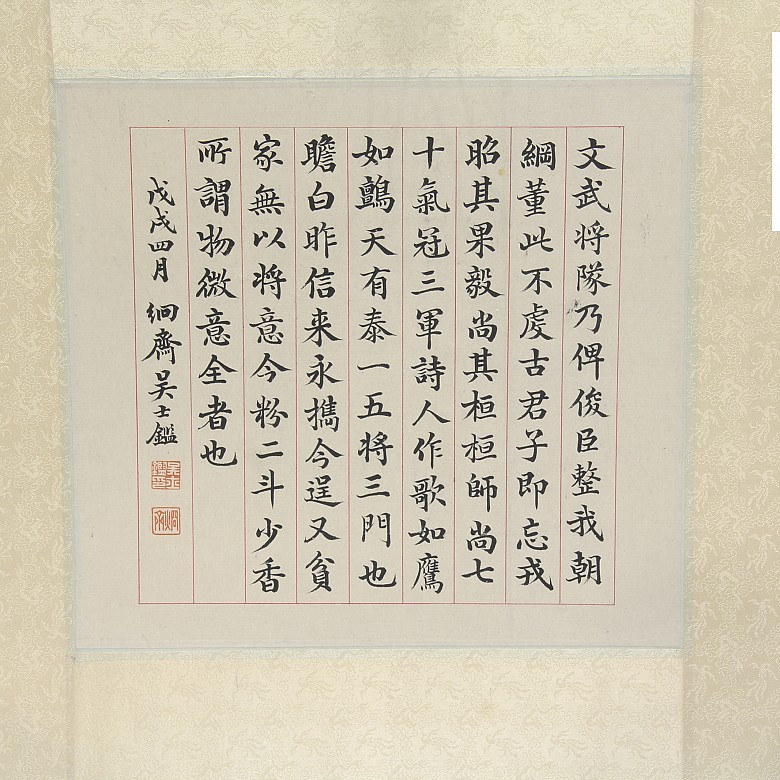 文武将隊乃俾俊臣整我朝
綱董此不虔古君子即忘戎
昭其果毅尚其桓桓師尚七
十氣冠三軍詩人作歌如鷹
如鸇天有泰一五将三門也
瞻白昨信来永攜今逞又貧
家無以将意今粉二斗少香
所謂物微意全者也
戊戌四月 絅齋吴士鑑